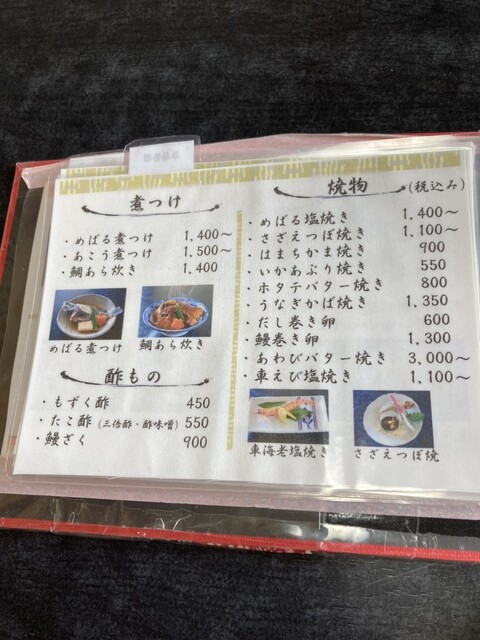 煮つけ
・めばる煮つけ 1,400〜
・あこう煮つけ 1,500〜
・鯛あら炊き 1,400
めばる煮つけ 鯛あら炊き
酢もの
・もずく酢 450
・たこ酢 (三倍酢・酢味噌) 550
・鰻ざく 900
焼物 (税込み)
・めばる塩焼き 1,400〜
・さざえつぼ焼き 1,100〜
・はまちかま焼き 900
・いかあぶり焼き 550
・ホタテバター焼き 800
・うなぎかば焼き 1,350
・だし巻き卵 600
・鰻巻き卵 1,300
・あわびバター焼き 3,000〜
・車えび塩焼き 1,100〜
車海老塩焼き さざえつぼ焼